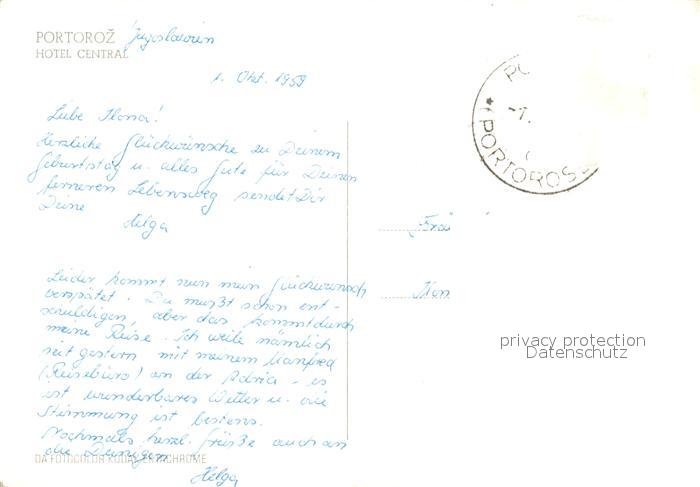 PORTOROŽ Jugoslawien
HOTEL CENTRAL
1. Okt. 1959
Liebe Ilona!
Herzliche Glückwünsche zu Deinem
Geburtstag u. alles Gute für Deinen
ferneren Lebensweg sendet Dir
Deine
Helga
Leider kommt nun mein Glückwunsch
verspätet. Du mußt schon ent-
schuldigen, aber das kommt durch
meine Reise. Ich weile nämlich
seit gestern mit meinem Manfred
(Reisebüro) an der Adria - es
ist wunderbares Wetter u. die
Stimmung ist bestens.
Nochmals herzl. Grüße auch an
die Deinigen
Helga
DA FOTOCOLOR KODAK EKTACHROME
PORTOROS
Frau
Ilon
privacy protection
Datenschutz